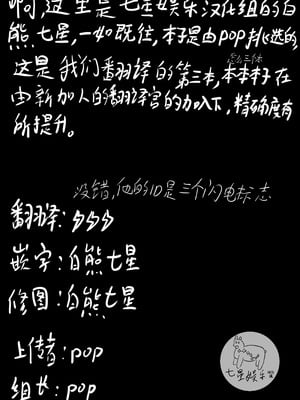 啊,这里是七星娱乐汉化组的白
熊七星,一如既往,本子是由pop挑选的
这是我们翻译的第三本,本本子在
怎么三体
由新加人的翻译官的加入下,精确度有
所提升。
没错,他的ID是三个闪电标志
翻译:ϟϟϟ
嵌字:白熊七星
修图:白熊七星
上传者:pop
组长:pop
七星娱乐